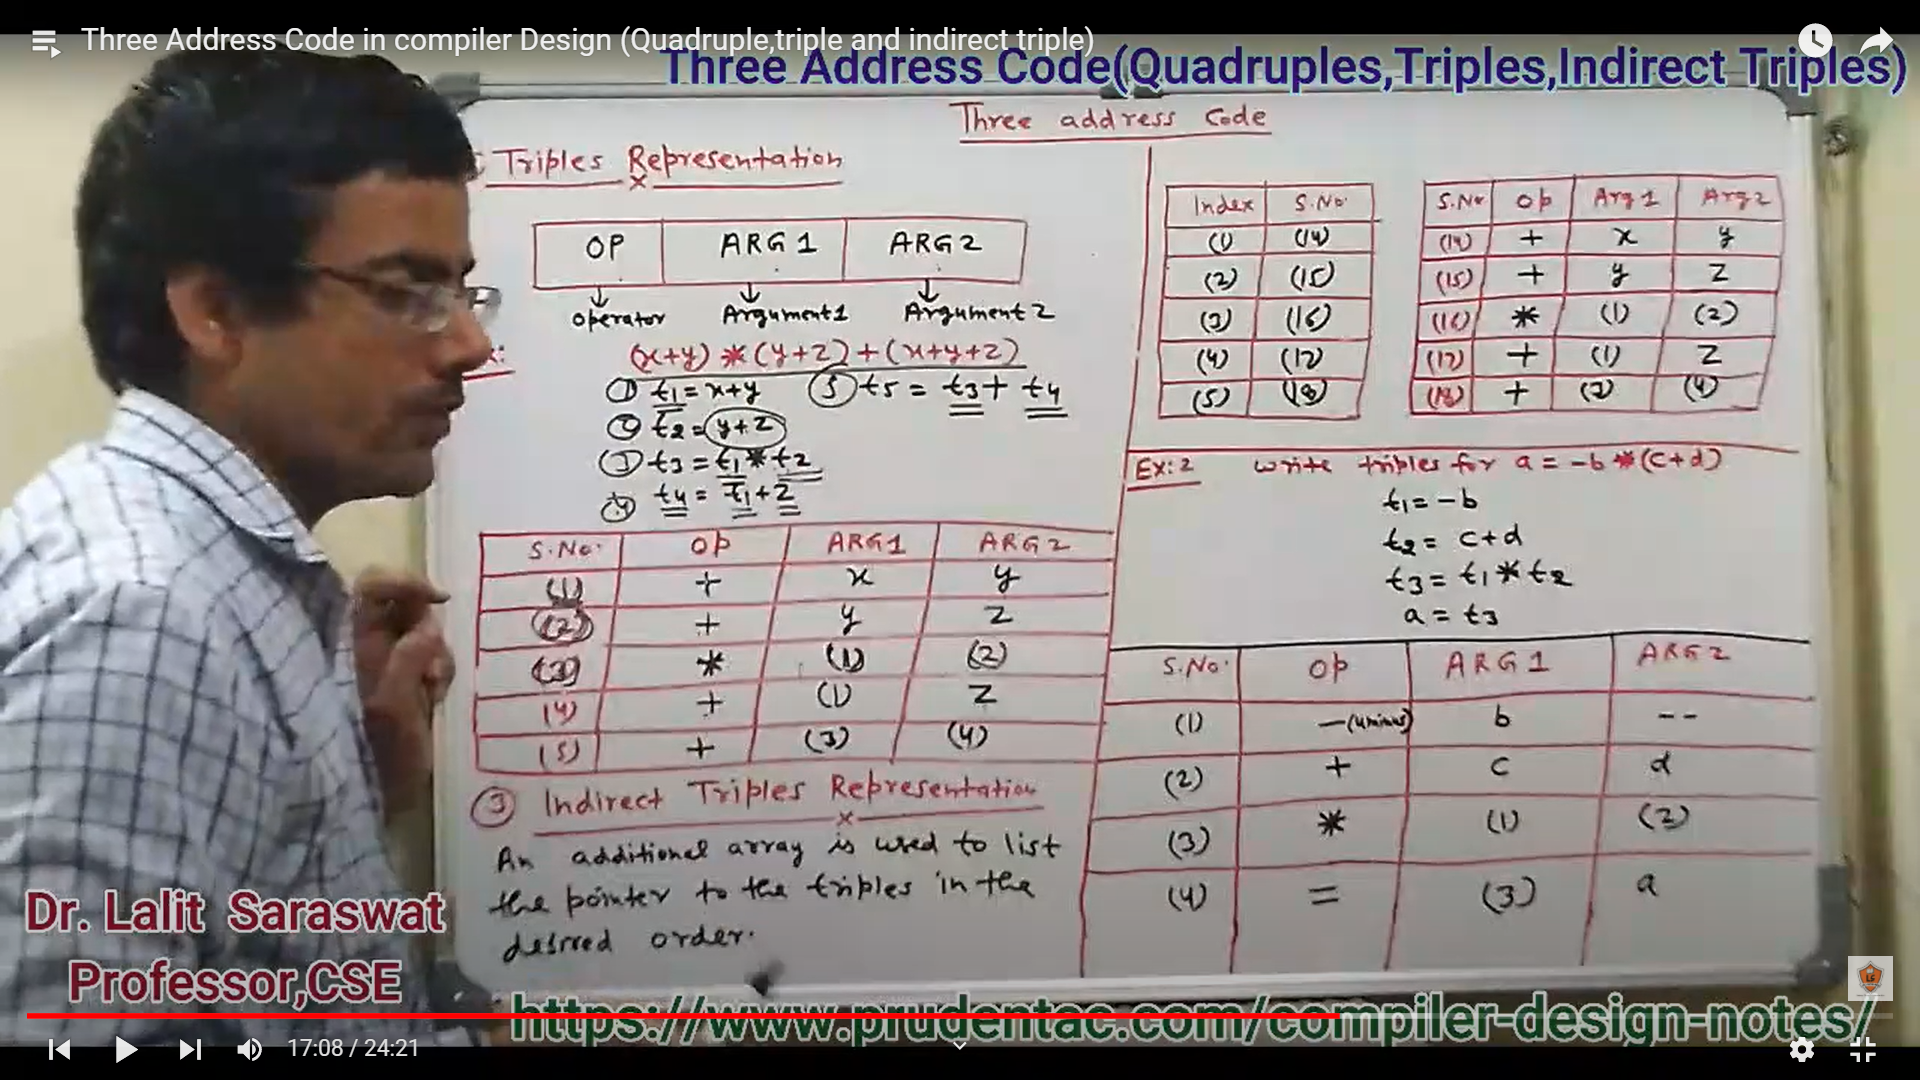 Three Address Code in compiler Design (Quadruple,triple and indirect triple)
Three Address Code(Quadruples,Triples,Indirect Triples)
Three address Code
Triples Representation
OP ARG 1 ARG 2
Operator Argument 1 Argument 2
(x+y) * (y+z) + (x+y+z)
① t1 = x+y ⑤ t5 = t3 + t4
② t2 = y+z
③ t3 = t1 * t2
④ t4 = t1 + z
S.No. Op ARG 1 ARG 2
(1) + x y
(2) + y z
(3) * (1) (2)
(4) + (1) z
(5) + (3) (4)
③ Indirect Triples Representation
An additional array is used to list
the pointer to the triples in the
desired order.
Index S.No.
(1) (14)
(2) (15)
(3) (16)
(4) (17)
(5) (18)
S.No Op Arg 1 Arg 2
(14) + x y
(15) + y z
(16) * (1) (2)
(17) + (1) z
(18) + (3) (4)
Ex: 2 write triples for a = -b * (c+d)
t1 = -b
t2 = c+d
t3 = t1 * t2
a = t3
S.No. Op ARG 1 ARG 2
(1) - (uminus) b --
(2) + c d
(3) * (1) (2)
(4) = (3) a
Dr. Lalit Saraswat
Professor,CSE
https://www.prudentac.com/compiler-design-notes/
17:08 / 24:21